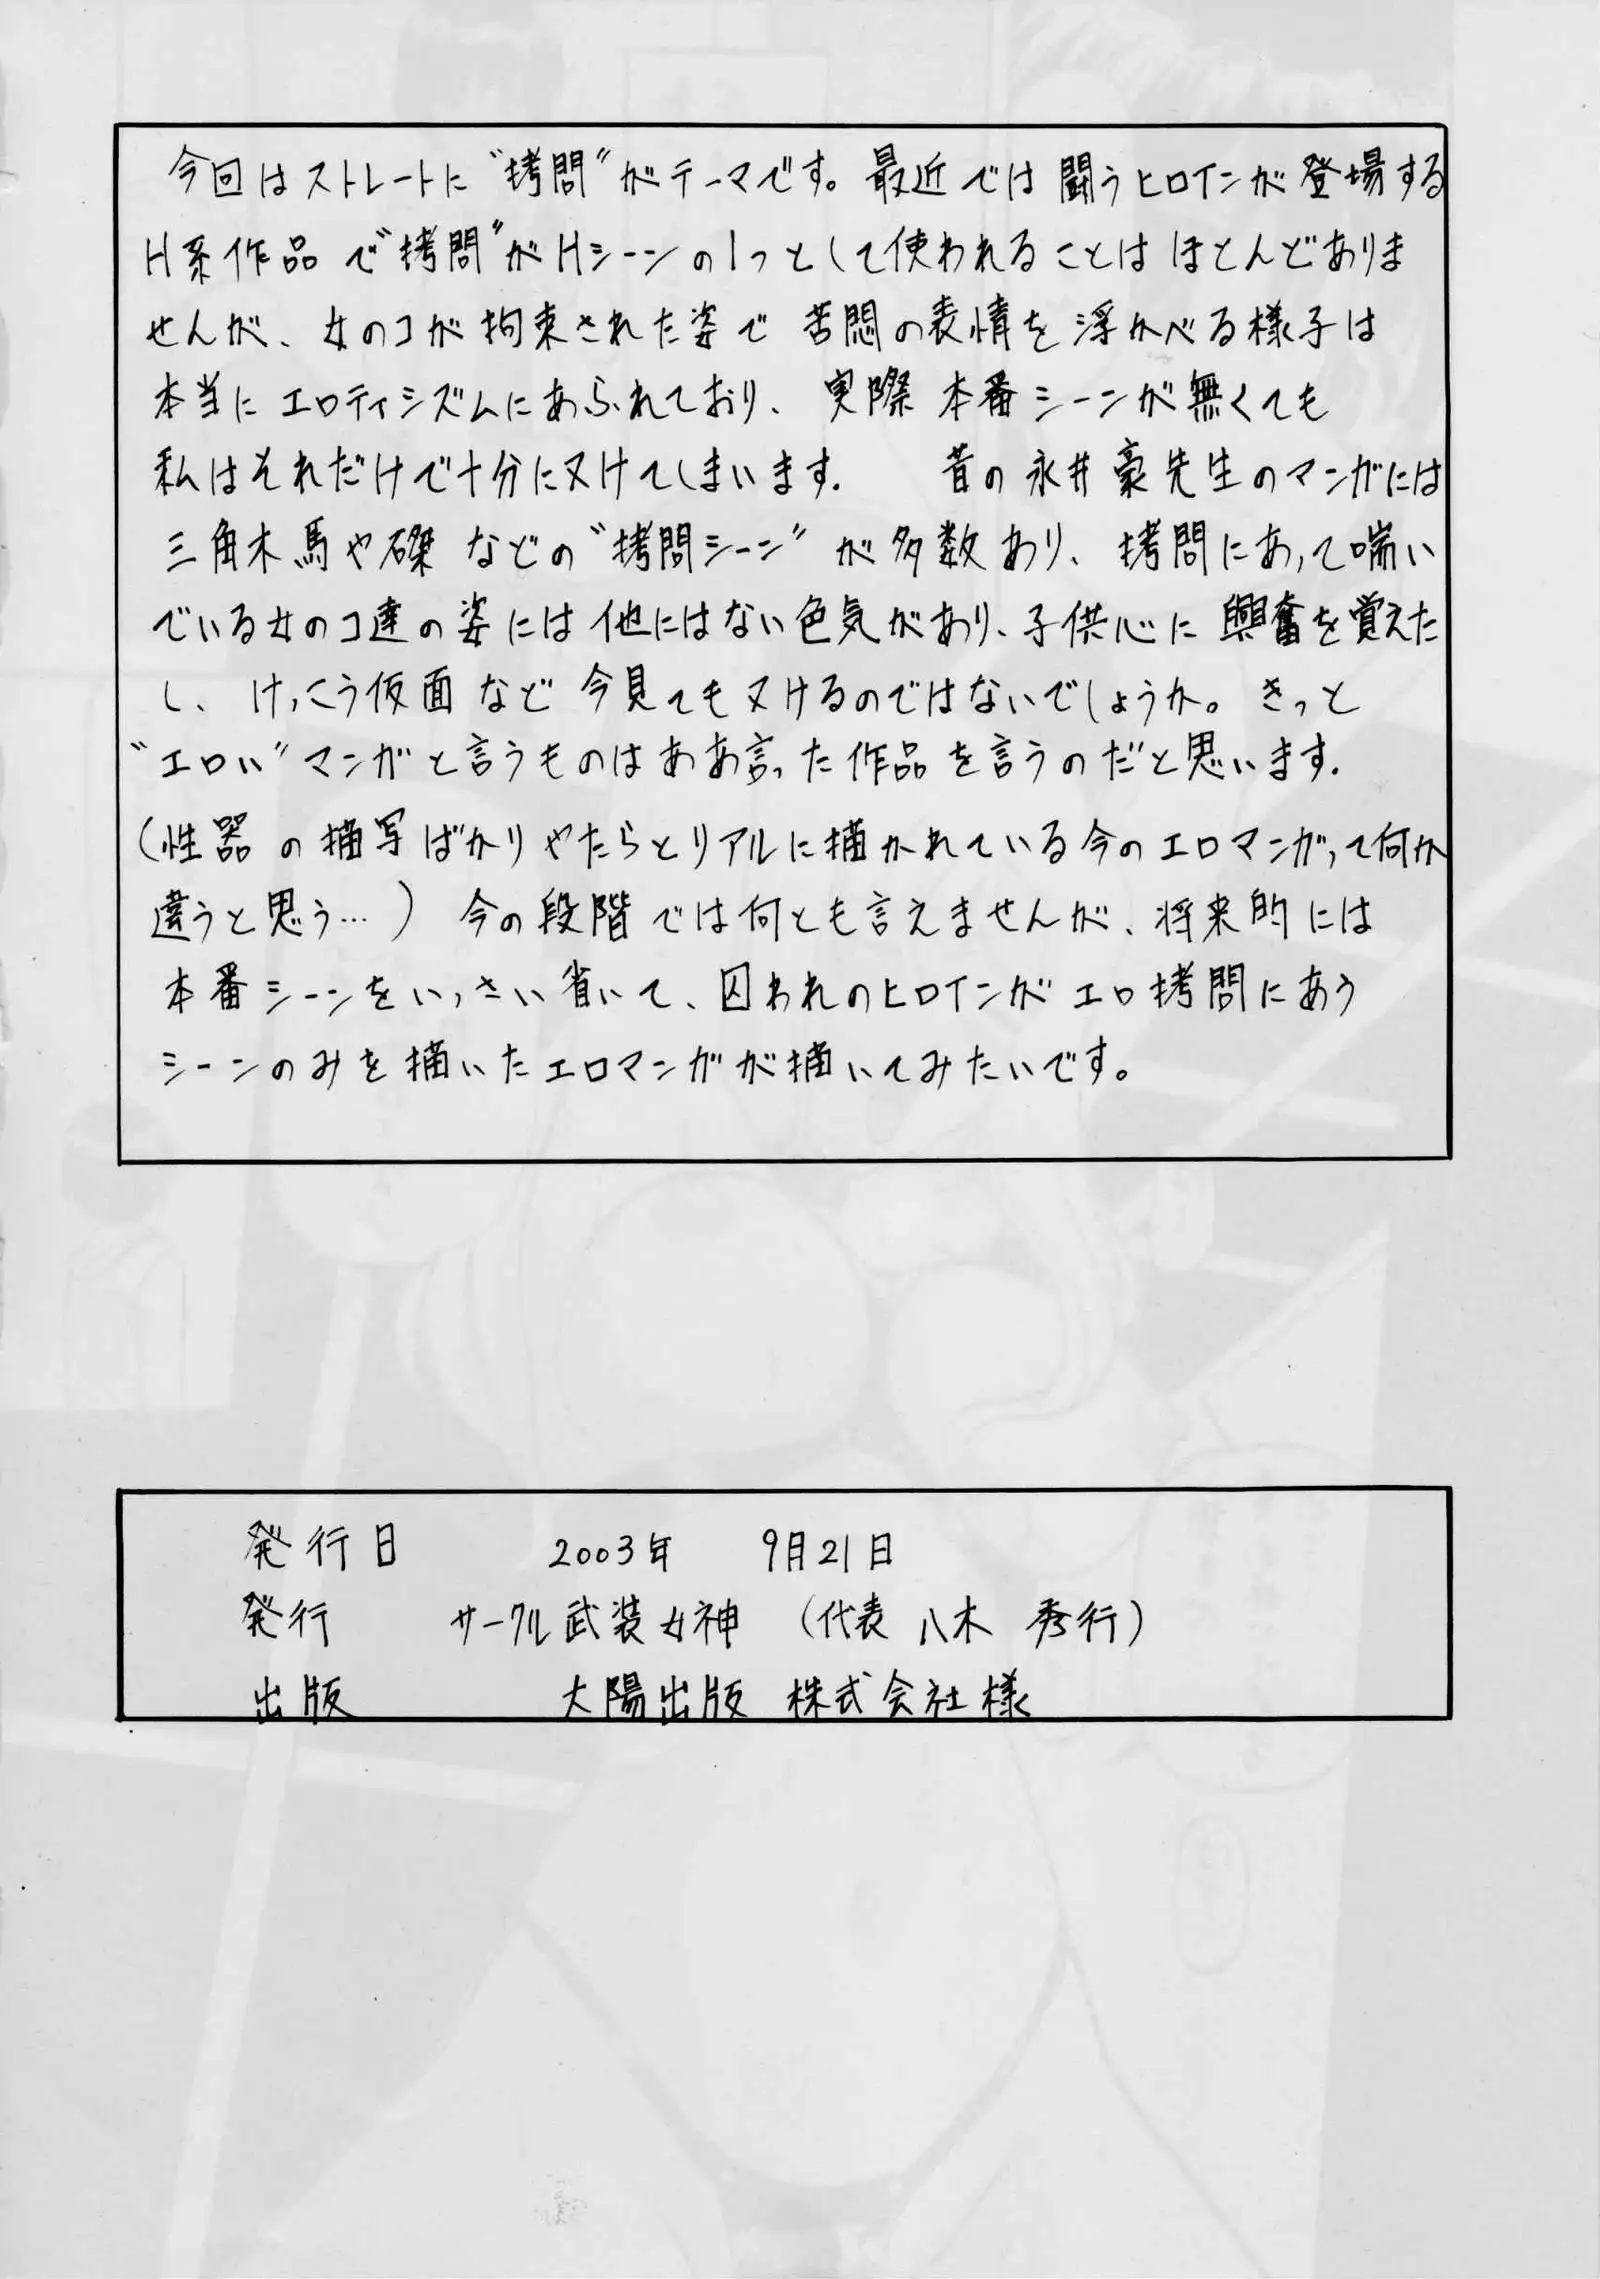 今回はストレートに“拷問”がテーマです。最近では闘うヒロインが登場する
H系作品で“拷問”がHシーンの1つとして使われることはほとんどありま
せんが、女のコが拘束された姿で苦悶の表情を浮かべる様子は
本当にエロティシズムにあふれており、実際本番シーンが無くても
私はそれだけで十分にヌけてしまいます。昔の永井豪先生のマンガには
三角木馬や磔などの“拷問シーン”が多数あり、拷問にあって喘い
でいる女のコ達の姿には他にはない色気があり、子供心に興奮を覚えた
し、けっこう仮面など今見てもヌけるのではないでしょうか。きっと
“エロい”マンガと言うものはああ言った作品を言うのだと思います。
(性器の描写ばかりやたらとリアルに描かれている今のエロマンガって何か
違うと思う…)今の段階では何とも言えませんが、将来的には
本番シーンをいっさい省いて、囚われのヒロインがエロ拷問にあう
シーンのみを描いたエロマンガが描いてみたいです。
発行日 2003年 9月21日
発行 サークル武装女神 (代表 八木 秀行)
出版 大陽出版 株式会社様